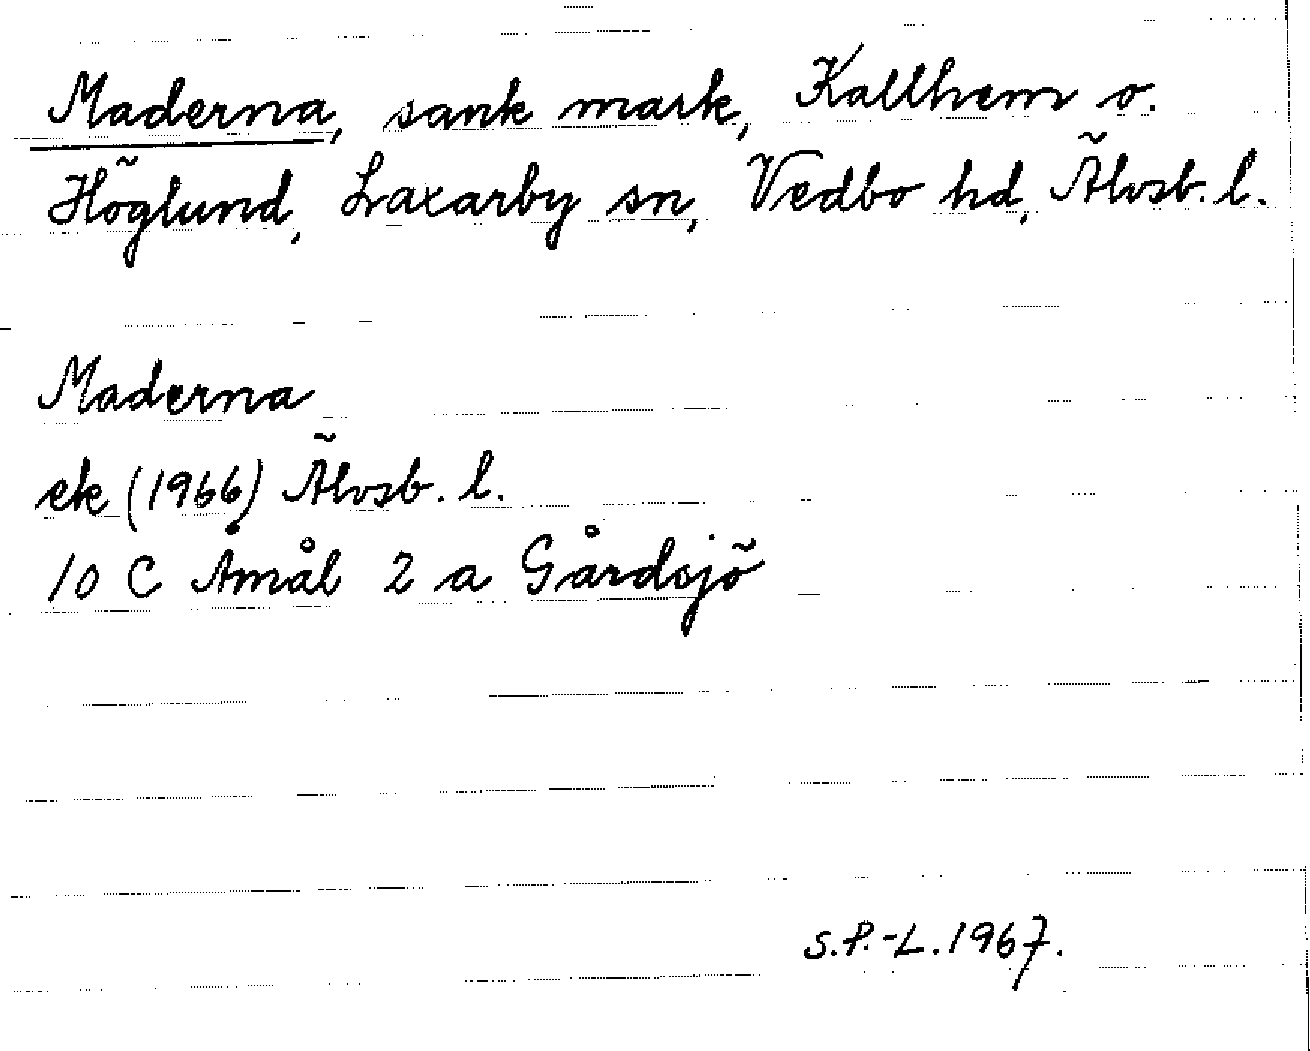 Maderna, sank mark, Kallhem o.
Höglund, Laxarby sn, Vedbo hd, Älvsb. l.
Maderna
ek (1966) Älvsb. l.
10 C Åmål 2 a Gårdsjö
S.P.-L. 1967.